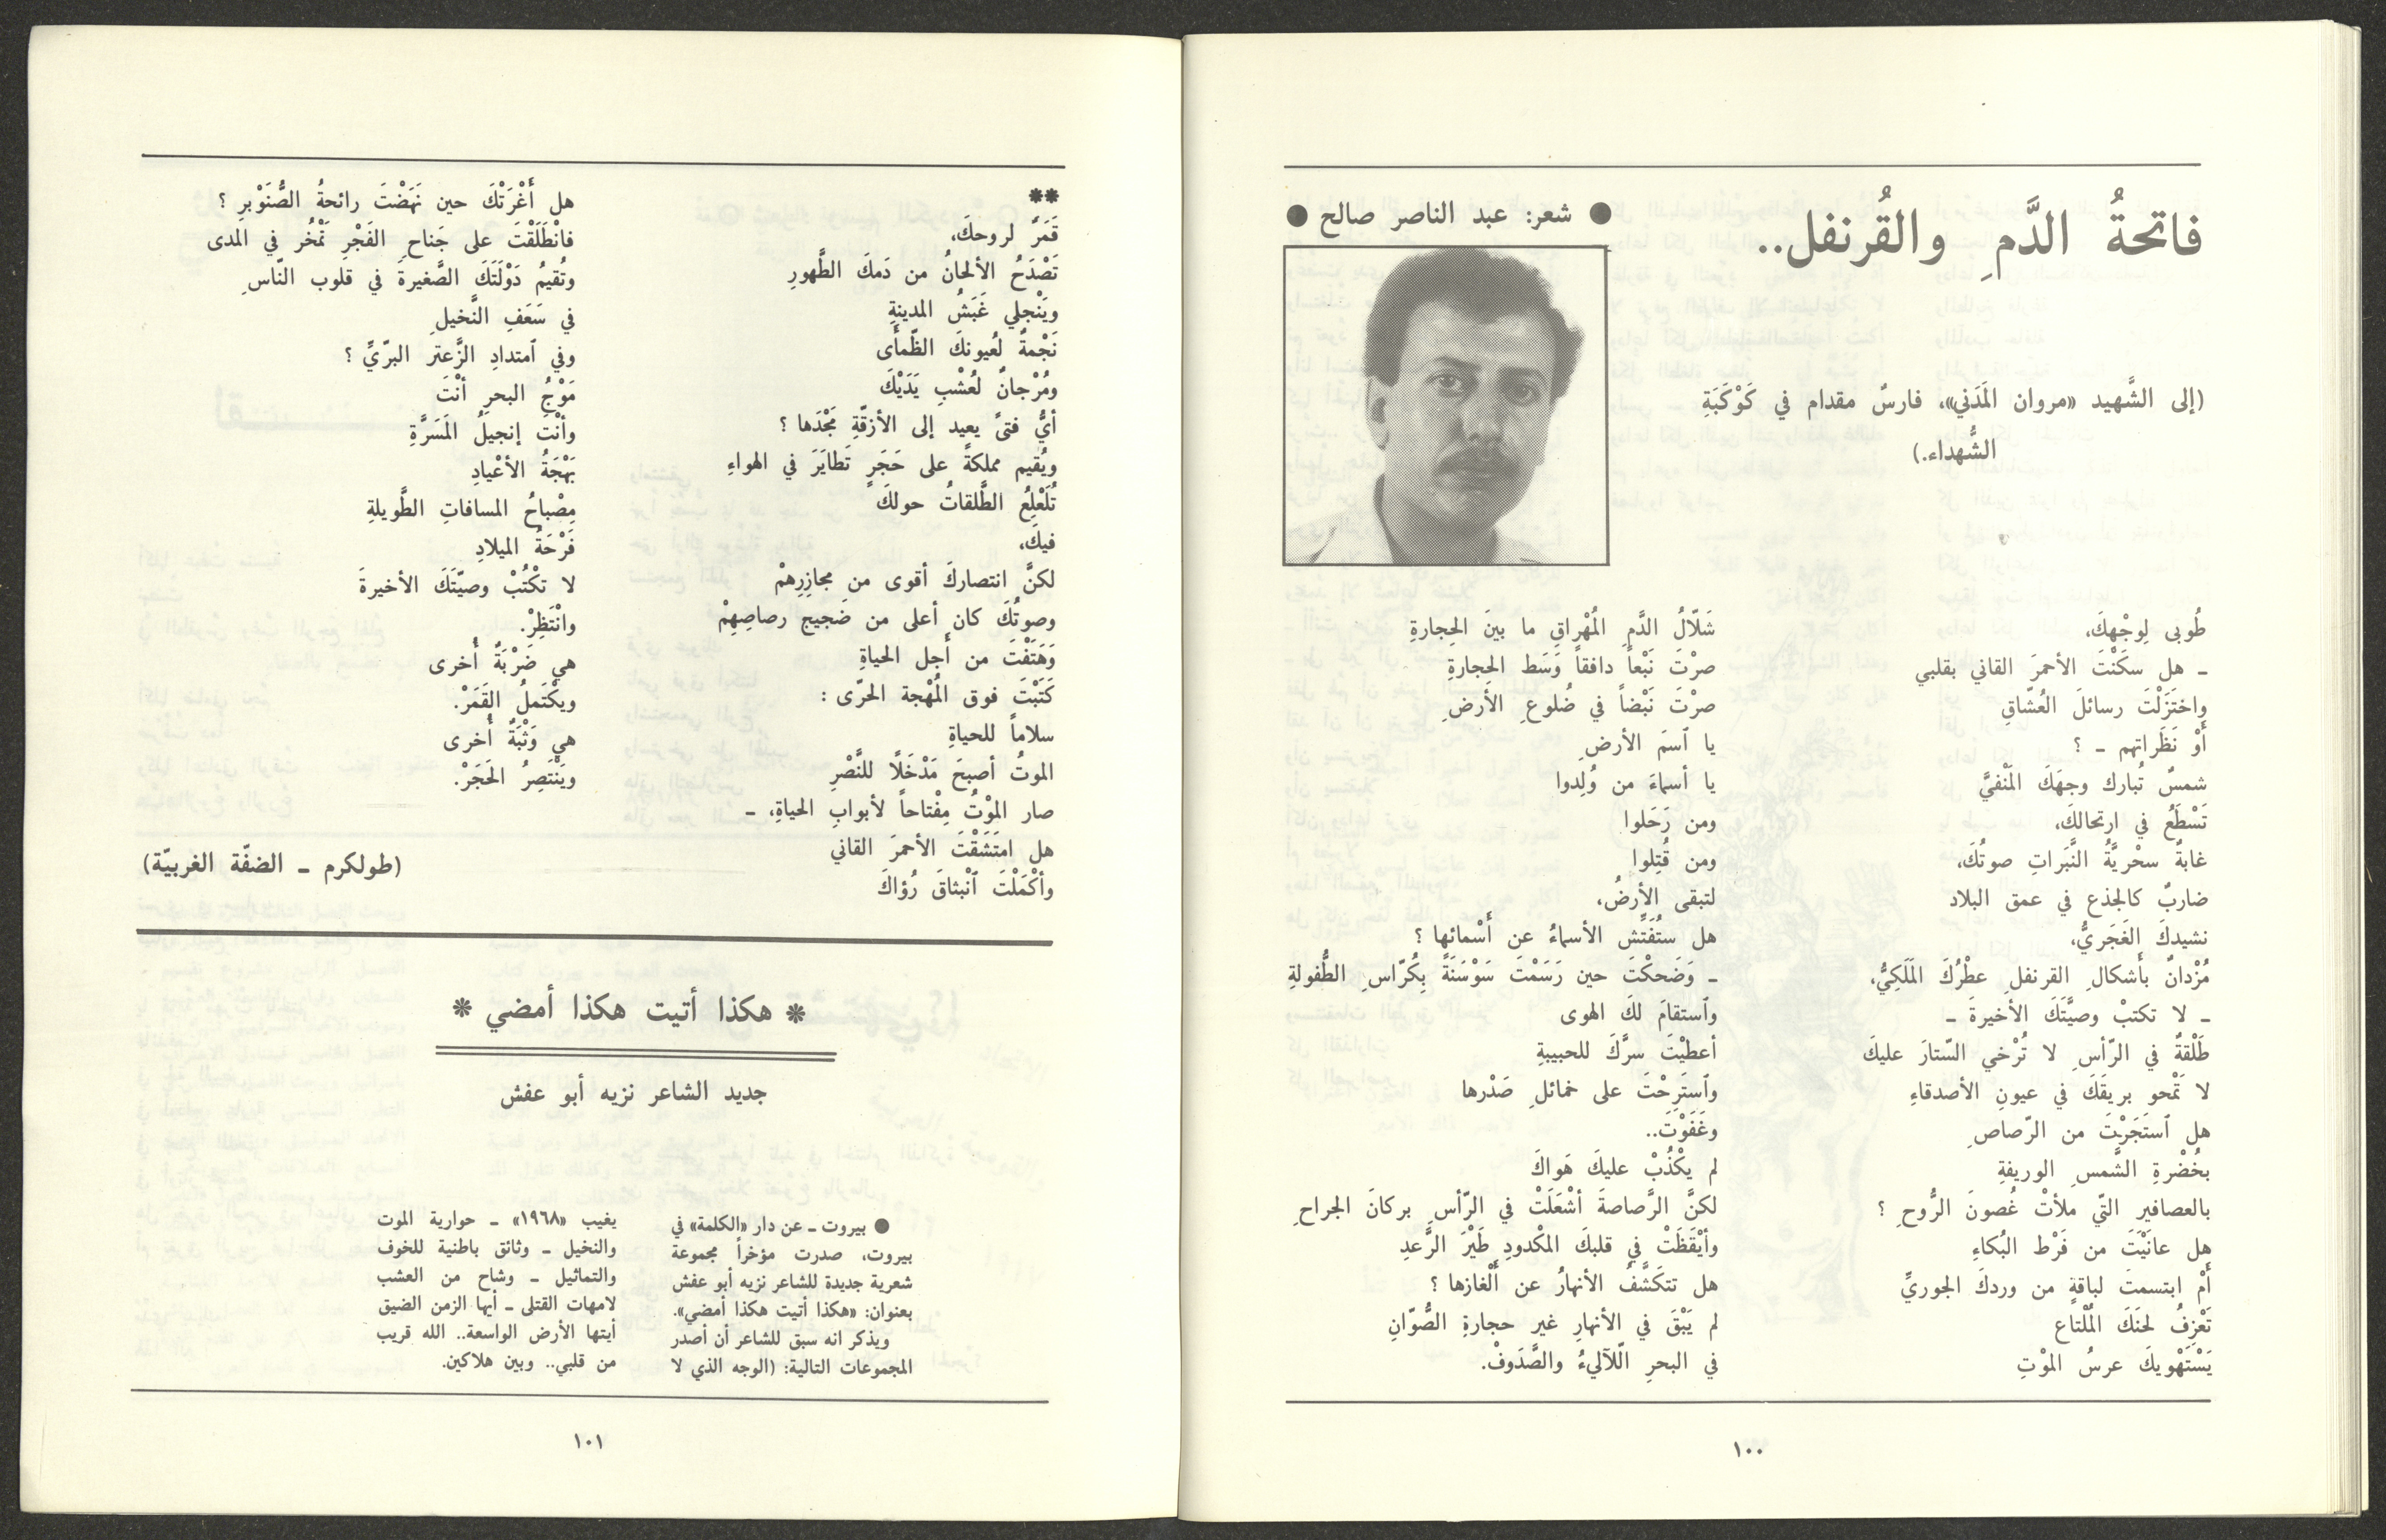 فاتحةُ الدَّمِ والقُرنفل..
● شعر: عبد الناصر صالح ●
(إلى الشَّهيد «مروان المَدَني»، فارسٌ مقدام في كَوْكَبَةِ
الشُّهداء.)
طُوبى لِوجْهِكَ،
ـ هل سكَنْتَ الأحمرَ القاني بقلبي
واختَزَلْتَ رسائلَ العُشّاقِ
أَوْ نَظَراتهم ـ ؟
شمسٌ تُبارك وجهَكَ المَنْفيَّ
تَسْطَعُ في ارتحالكَ،
غابةٌ سحْريَّةُ النَّبَراتِ صوتُكَ،
ضاربٌ كالجذع في عمق البلاد
نشيدكَ الغَجَريُّ،
مُزْدانٌ بأَشكالِ القرنفلِ عطْرُكَ المَلَكِيُّ،
ـ لا تكتبْ وصيَّتَكَ الأخيرةَ ـ
طَلْقةٌ في الرّأسِ لا تُرْخي السّتارَ عليكَ
لا تَمْحو بريقَكَ في عيونِ الأصدقاءِ
هل ٱستَجَرْتَ من الرّصاصِ
بخُضْرةِ الشَّمسِ الوريفةِ
بالعصافيرِ التّي ملأتْ غُصونَ الرُّوحِ ؟
هل عانَيْتَ من فَرْط البُكاءِ
أَمْ ابتسمتَ لباقةٍ من وردكَ الجوريِّ
تَعْزِفُ لحنَكَ المُلْتاع
يَسْتَهْويكَ عرسُ الموْتِ
شَلّالُ الدَّمِ المُهْراقِ ما بينَ الحِجارةِ
صرْتَ نَبْعاً دافقاً وَسَط الحِجارةِ
صرْتَ نَبْضاً في ضُلوعِ الأرضِ
يا ٱسمَ الأرضِ
يا أسماءَ من وُلِدوا
ومن رَحَلوا
ومن قُتِلوا
لتبقى الأرضُ،
هل ستُفَتَّش الأسماءُ عن أَسْمائها ؟
ـ وَضَحكْتَ حين رَسَمْتَ سَوْسَنَةً بِكُرّاسِ الطُّفولةِ
وٱستقامَ لكَ الهوى
أعطيْتَ سرَّكَ للحبيبةِ
وٱستَرِحْتَ على خمائلِ صَدْرها
وغَفَوْتَ..
لم يكْذُبْ عليكَ هَواكَ
لكنَّ الرَّصاصةَ أشْعَلَتْ في الرّأسِ بركانَ الجراحِ
وأيْقَظَتْ في قلبكَ المكْدودِ طَيْرَ الرَّعدِ
هل تتكَشَّفُ الأنهارُ عن أَلْغازها ؟
لم يَبْقَ في الأنهارِ غير حجارةِ الصُّوّانِ
في البحرِ اللآليءُ والصَّدَوفْ.
١٠٠
**
قَمَرٌ لروحكَ،
تَصْدَحُ الألحانُ من دَمكَ الطَّهورِ
ويَنْجلي غَبَشُ المدينةِ
نَجْمةٌ لعُيونكَ الظّمأَى
ومُرْجانٌ لعُشْبِ يَدَيْكَ
أيُّ فتىً يعيد إلى الأزقّةِ مَجْدَها ؟
ويُقيم مملكةً على حَجَرٍ تَطايَرَ في الهواءِ
تُلَعْلِعُ الطَّلقاتُ حولكَ
فيكَ،
لكنَّ انتصاركَ أقوى من مجازِرِهمْ
وصوتُكَ كان أعلى من ضَجيج رصاصِهِمْ
وَهَتَفْتَ من أَجل الحياةِ
كَتَبْتَ فوق المُهْجة الحرّى :
سلاماً للحياةِ
الموتُ أصبحَ مَدْخَلاً للنَّصْرِ
صار الموْتُ مِفْتاحاً لأبوابِ الحياةِ، ـ
هل امتَشَقْتَ الأحمرَ القاني
وأكْمَلْتَ ٱنْبثاقَ رُؤاكَ
هل أَغْرَتْكَ حين نَهَضْتَ رائحةُ الصُّنَوْبرِ ؟
فانْطَلَقْتَ على جَناحِ الفَجْرِ تَمْخُر في المدى
وتُقيمُ دَوْلَتَكَ الصَّغيرةَ في قلوب النّاسِ
في سَعَفِ النَّخيلِ
وفي ٱمتدادِ الزَّعتر البرّيِّ ؟
مَوْجُ البحرِ أنْتَ
وأنْت إنجيلُ المَسَرَّةِ
بَهْجَةُ الأعْيادِ
مِصْباحُ المسافاتِ الطَّويلةِ
فَرْحَةُ الميلادِ
لا تكْتُبْ وصيّتَكَ الأخيرةَ
وانْتَظِرْ.
هي ضَرْبَةٌ أُخرى
ويكْتَملُ القَمَرْ.
هي وَثْبَةٌ أُخرى
ويَنْتَصِرُ الحَجَرْ.
(طولكرم ـ الضفّة الغربيّة)
* هكذا أتيت هكذا أمضي *
جديد الشاعر نزيه أبو عفش
● بيروت ـ عن دار «الكلمة» في
بيروت، صدرت مؤخراً مجموعة
شعرية جديدة للشاعر نزيه أبو عفش
بعنوان: «هكذا أتيت هكذا أمضي».
ويذكر انه سبق للشاعر أن أصدر
المجموعات التالية: (الوجه الذي لا
يغيب «١٩٦٨» ـ حوارية الموت
والنخيل ـ وثائق باطنية للخوف
والتماثيل ـ وشاح من العشب
لامهات القتلى ـ أيها الزمن الضيق
أيتها الأرض الواسعة.. الله قريب
من قلبي.. وبين هلاكين.
١٠١